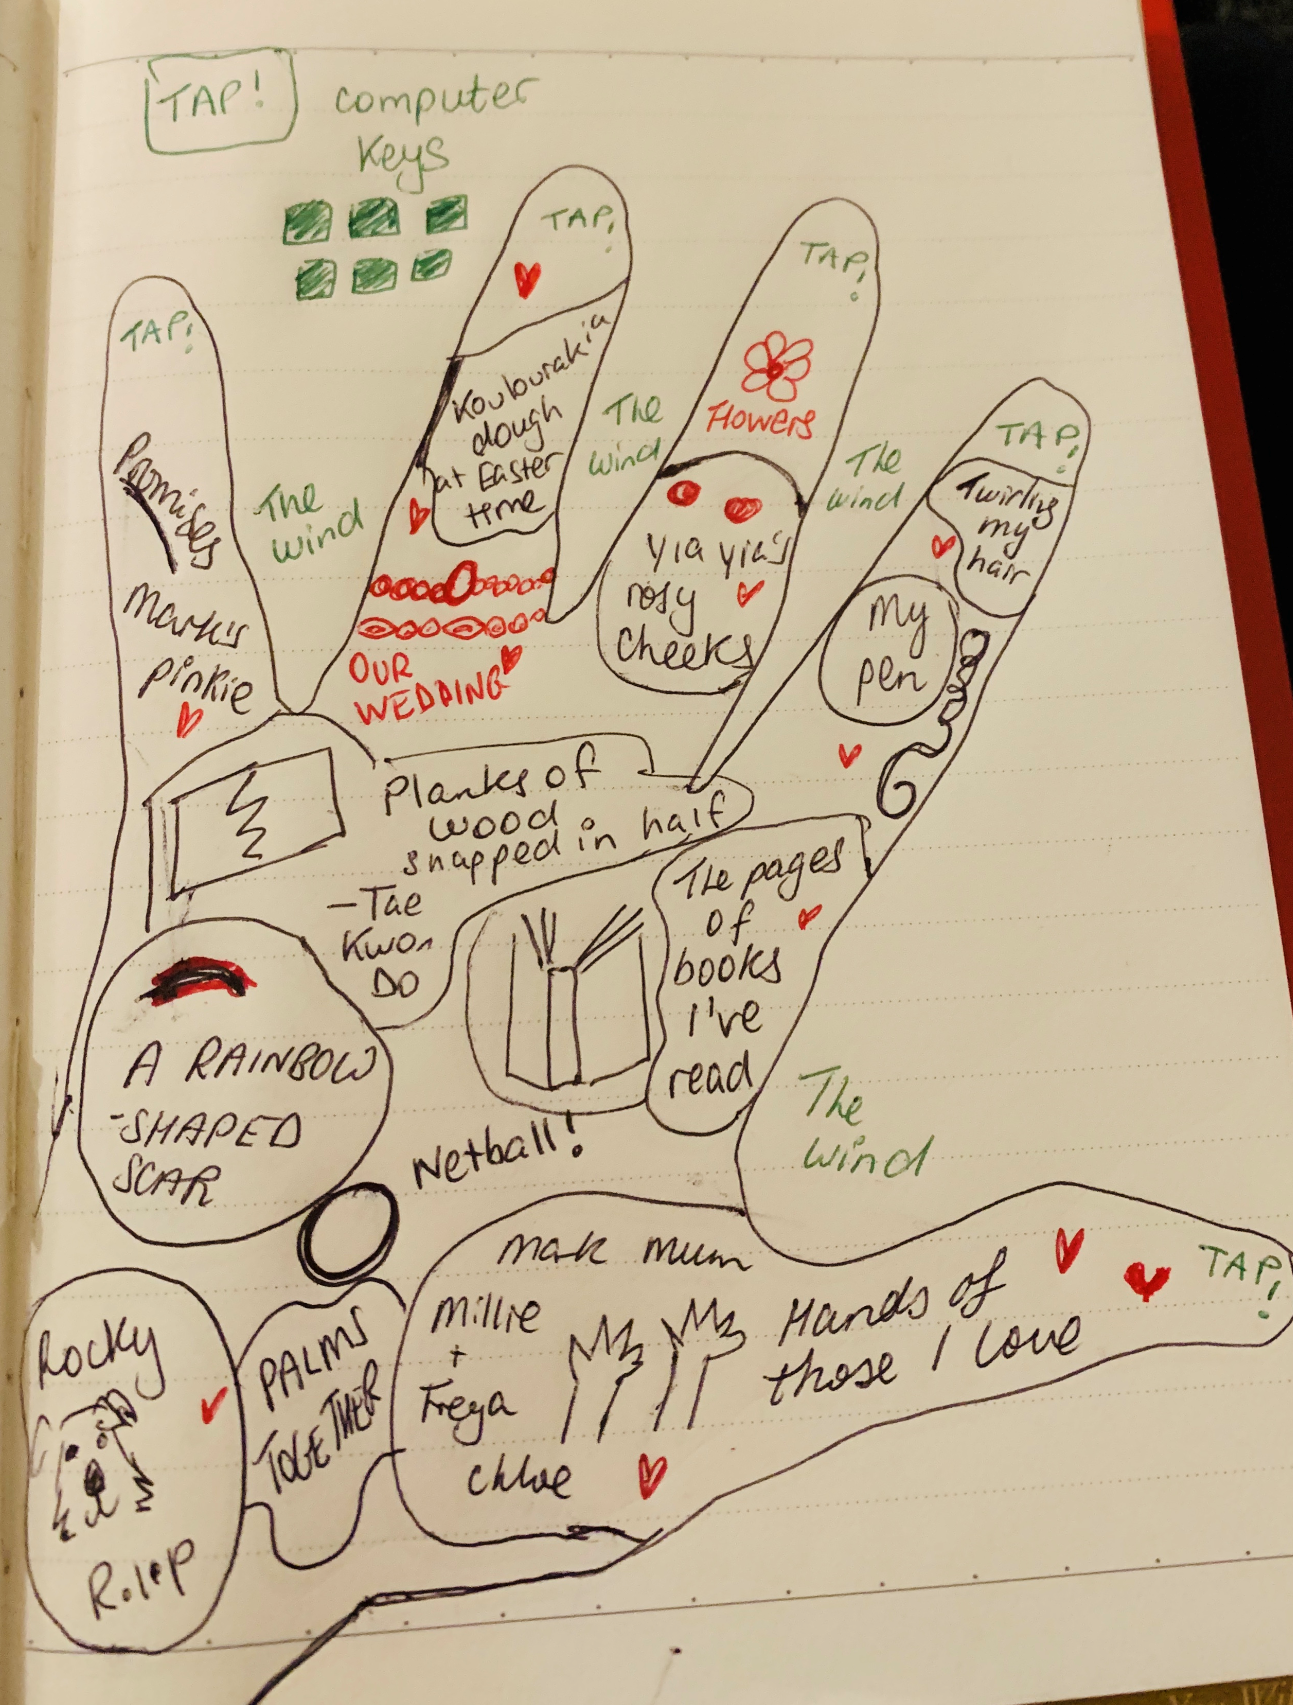 TAP!
computer
keys
TAP!
TAP!
TAP!
TAP!
Promises
Mark's
pinkie
The
wind
Koulourakia
dough
at Easter
time
OUR
WEDDING
The
wind
Flowers
Yia yia's
rosy
cheeks
The
wind
Twirling
my
hair
My
pen
Planks of
wood
snapped in half
-Tae
Kwon
Do
The pages
of
books
I've
read
A RAINBOW
-SHAPED
SCAR
Netball!
The
wind
Mark Mum
Millie
+
Freya
Chloe
Hands of
those I love
TAP!
PALMS
TOGETHER
Rocky
R.I.P